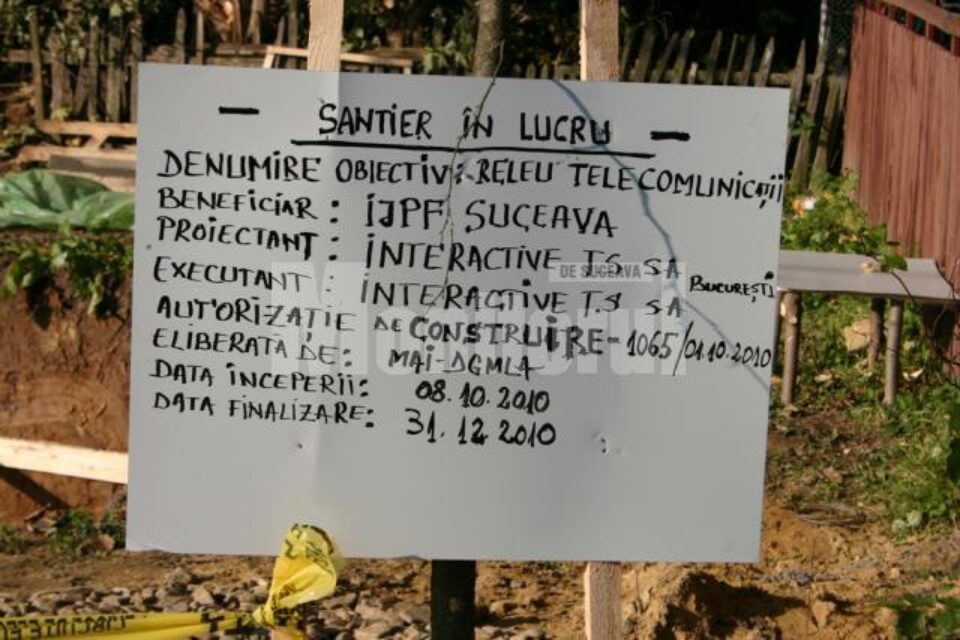 - ȘANTIER ÎN LUCRU -
DENUMIRE OBIECTIV: RELEU TELECOMUNICAȚII
BENEFICIAR: IJPF SUCEAVA
PROIECTANT: INTERACTIVE T.S SA
EXECUTANT: INTERACTIVE T.S SA BUCUREȘTI
AUTORIZAȚIE DE CONSTRUIRE-1065/01.10.2010
ELIBERATĂ DE: MAI-DGMLA
DATA ÎNCEPERII: 08.10.2010
DATA FINALIZARE: 31.12.2010
Monitorul
DE SUCEAVA